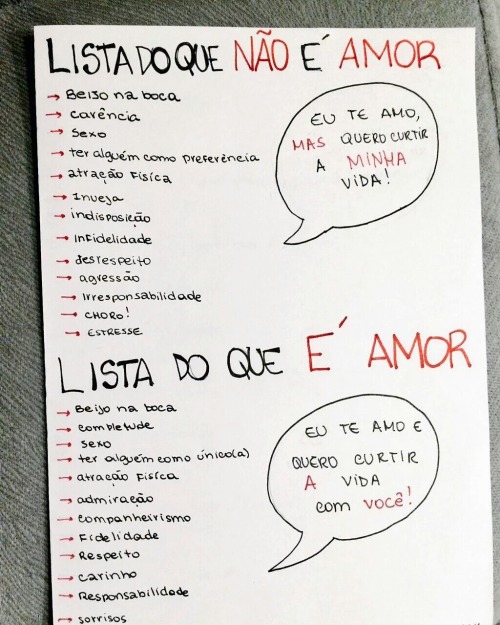 LISTA DO QUE NÃO É AMOR
→ Beijo na boca
→ carência
→ sexo
→ ter alguém como preferência
→ atração física
→ Inveja
→ indisposição
→ Infidelidade
→ desrespeito
→ agressão
→ Irresponsabilidade
→ CHORO!
→ ESTRESSE
EU TE AMO,
MAS QUERO CURTIR
A MINHA
VIDA!
LISTA DO QUE É AMOR
→ Beijo na boca
→ completude
→ sexo
→ ter alguém como único(a)
→ atração física
→ admiração
→ companheirismo
→ Fidelidade
→ Respeito
→ carinho
→ Responsabilidade
→ sorrisos
EU TE AMO E
QUERO CURTIR
A VIDA
com você!